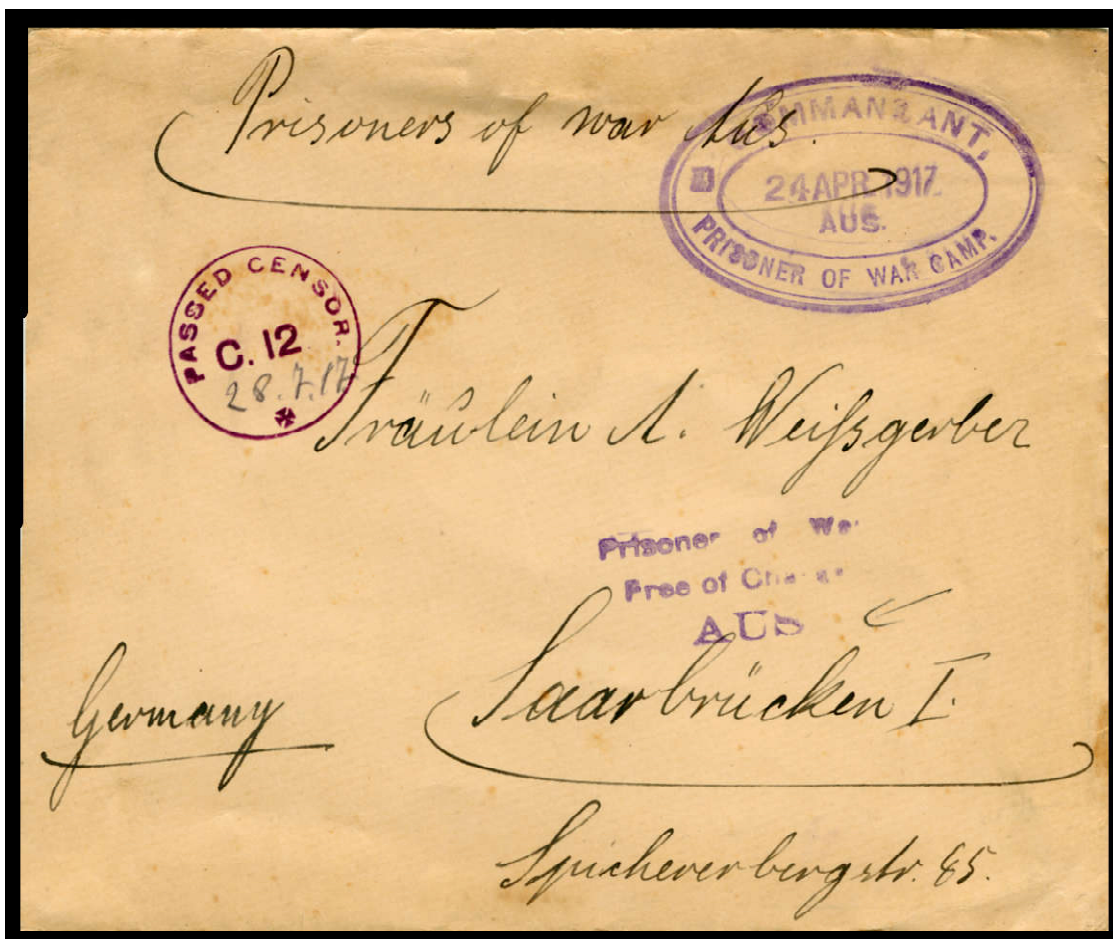 Prisoners of war Aus.
COMMANDANT,
24 APR. 1917
AUS.
PRISONER OF WAR CAMP.
PASSED CENSOR.
C. 12
28.7.17
Fräulein A. Weißgerber
Prisoner of
Free of
AUS
Saarbrücken I.
Germany
Spichererbergstr. 85.